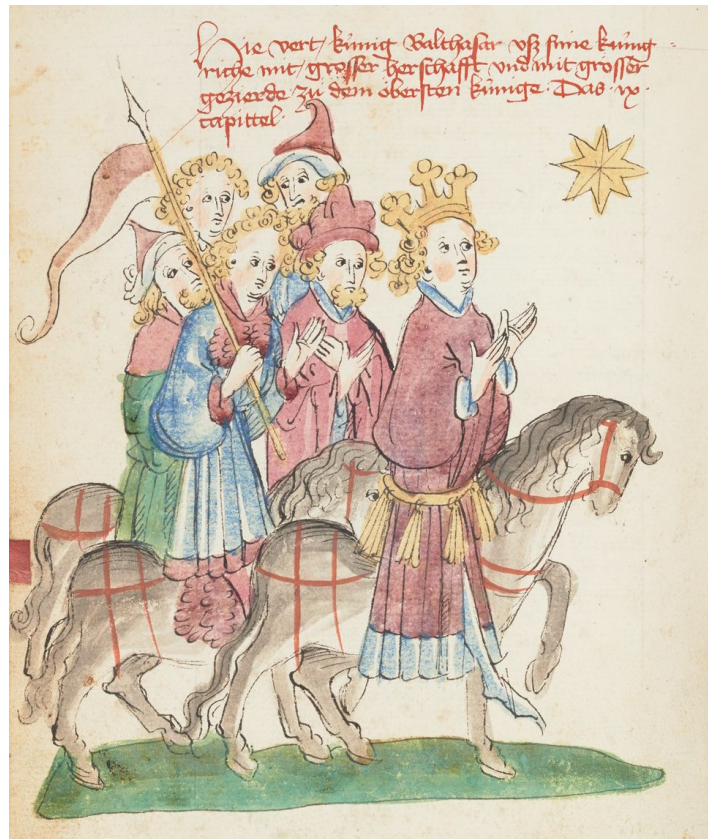 Hie vert künig Balthasar vsz sime künig-
riche mit grosser herschafft vnd mit grosser
gezierde zu dem obersten künige. Das ix.
capittel.